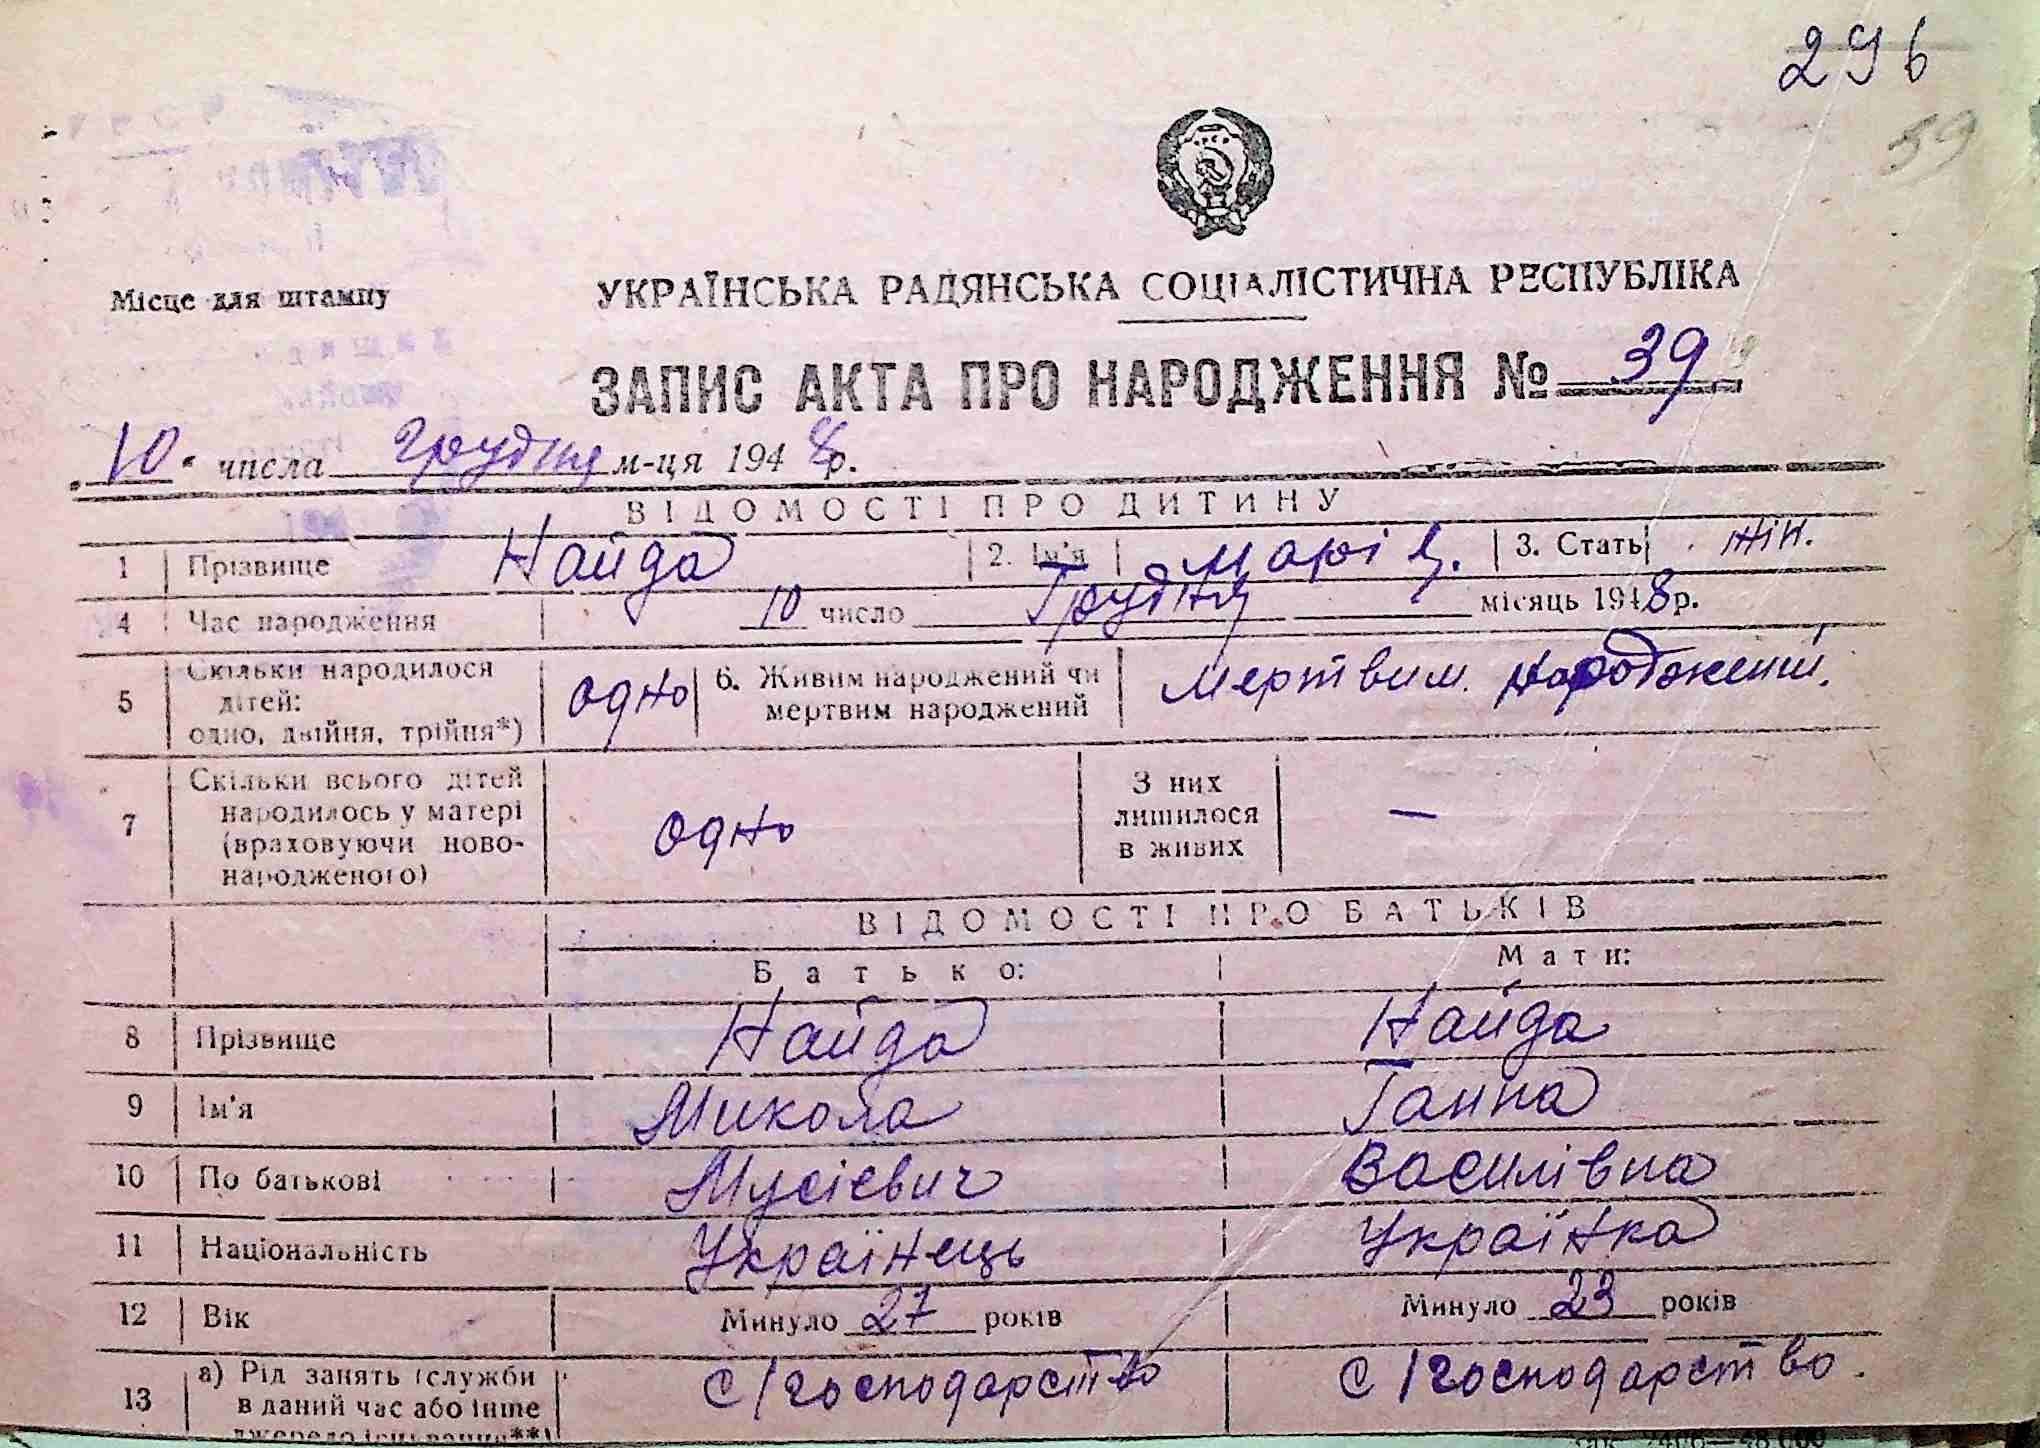 296
39
Місце для штампу
УКРАЇНСЬКА РАДЯНСЬКА СОЦІАЛІСТИЧНА РЕСПУБЛІКА
ЗАПИС АКТА ПРО НАРОДЖЕННЯ № 39
10 числа грудня м-ця 1948 р.
ВІДОМОСТІ ПРО ДИТИНУ
1 Прізвище Найда 2. Ім'я Марія. 3. Стать жін.
4 Час народження 10 число Грудня місяць 1948 р.
5 Скільки народилося дітей: одно, двійня, трійня*) одно 6. Живим народжений чи мертвим народжений мертвим народжений.
7 Скільки всього дітей народилось у матері (враховуючи новонародженого) одно З них лишилося в живих —
ВІДОМОСТІ ПРО БАТЬКІВ
Батько: Мати:
8 Прізвище Найда Найда
9 Ім'я Микола Ганна
10 По батькові Мусієвич Василівна
11 Національність Українець Українка
12 Вік Минуло 27 років Минуло 23 років
13 а) Рід занять (служби в даний час або інше джерело існування**) с/господарство с/господарство.